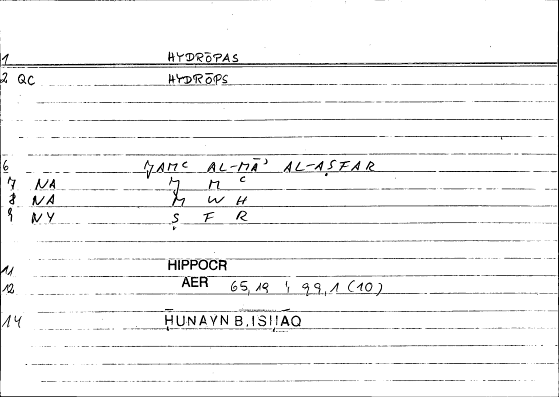 1 HYDRŌPAS
2 QC HYDRŌPS
6 ǦAMʿ AL-MĀʾ AL-AṢFAR
7 NA Ǧ M ʿ
8 NA M W H
9 NY Ṣ F R
11 HIPPOCR
12 AER 65,19 ; 99,1 (10)
14 ḤUNAYN B. ISḤĀQ